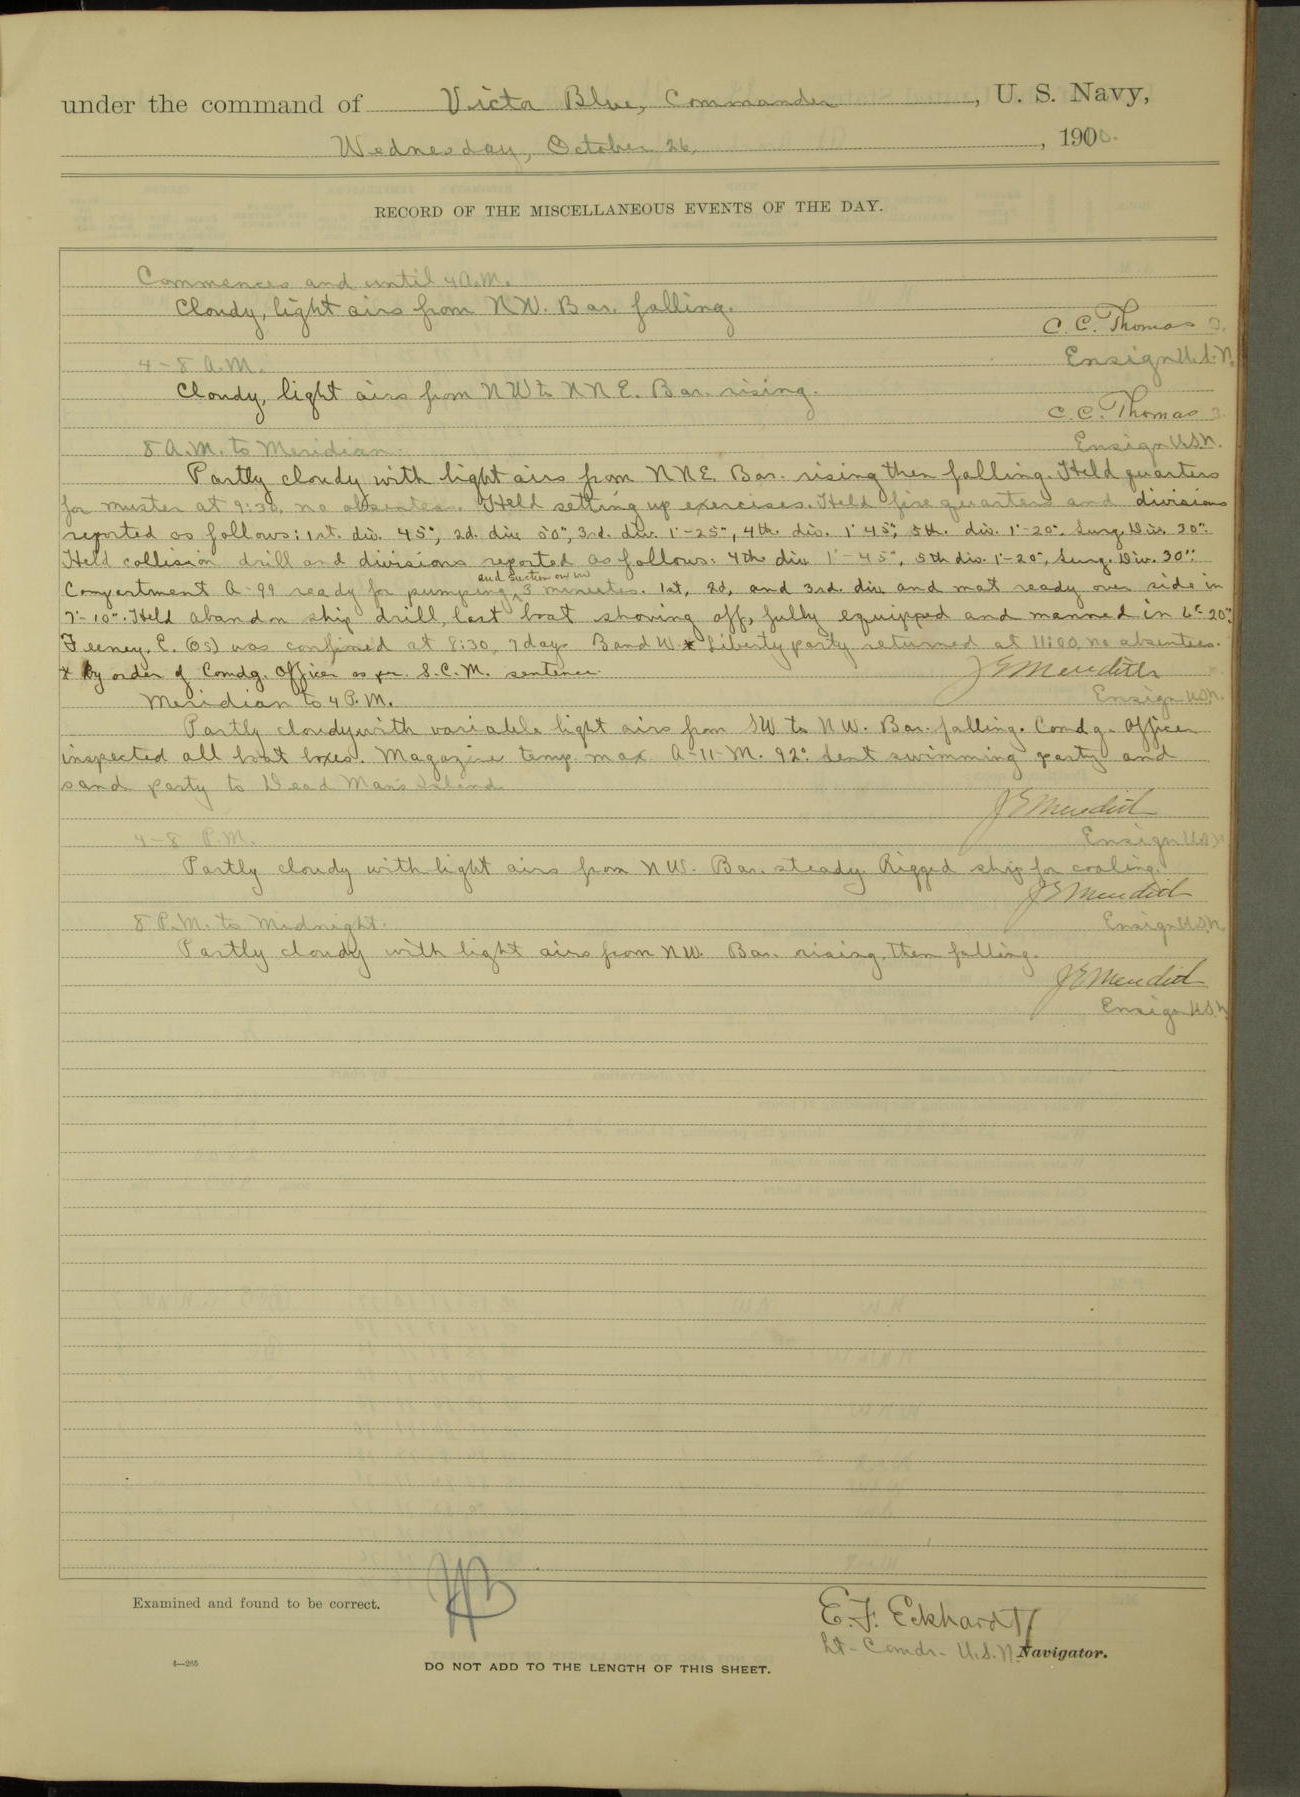 under the command of Victor Blue, Commander, U. S. Navy,
Wednesday, October 26, 190
RECORD OF THE MISCELLANEOUS EVENTS OF THE DAY.
Commences and until 4 A.M.
Cloudy, light airs from NW. Bar. falling.
C. C. Thomas
4-8 A.M.
Ensign U.S.N.
Cloudy, light airs from NW to NNE. Bar. rising.
C. C. Thomas
8 A.M. to Meridian.
Ensign U.S.N.
Partly cloudy with light airs from NNE. Bar. rising then falling. Held quarters
for muster at 9:30, no absentees. Held setting up exercises. Held fire quarters and divisions
reported as follows: 1st. div. 45", 2d. div. 50", 3rd. div. 1'-25", 4th. div. 1' 45", 5th. div. 1'-20". Surg. Div. 30".
Held collision drill and divisions reported as follows: 4th div. 1'-45", 5th div. 1'-20", Surg. Div. 30".
and suction on in
Compartment A-99 ready for pumping, 3 minutes. 1st, 2d, and 3rd. div. and mat ready over side in
2'-10". Held abandon ship drill, last boat shoving off, fully equipped and manned in 6'-20".
Feeney, C. (OS) was confined at 8:30, 7 days B and W.* Liberty party returned at 11:00, no absentees.
* By order of Comdg. Officer as per S.C.M. sentence.
J E Meredith
Meridian to 4 P.M.
Ensign U.S.N.
Partly cloudy with variable light airs from SW to NW. Bar. falling. Comdg. Officer
inspected all boat boxes. Magazine temp. max. A-11-M. 92°. Sent swimming party and
sand party to Dead Man's Island.
J E Meredith
4-8 P.M.
Ensign U.S.N.
Partly cloudy with light airs from NW. Bar. steady. Rigged ship for coaling.
J E Meredith
8 P.M. to Midnight.
Ensign U.S.N.
Partly cloudy with light airs from NW. Bar. rising, then falling.
J E Meredith
Ensign U.S.N.
Examined and found to be correct.
VB
E. F. Eckhardt
Lt-Comdr- U.S.N. Navigator.
DO NOT ADD TO THE LENGTH OF THIS SHEET.